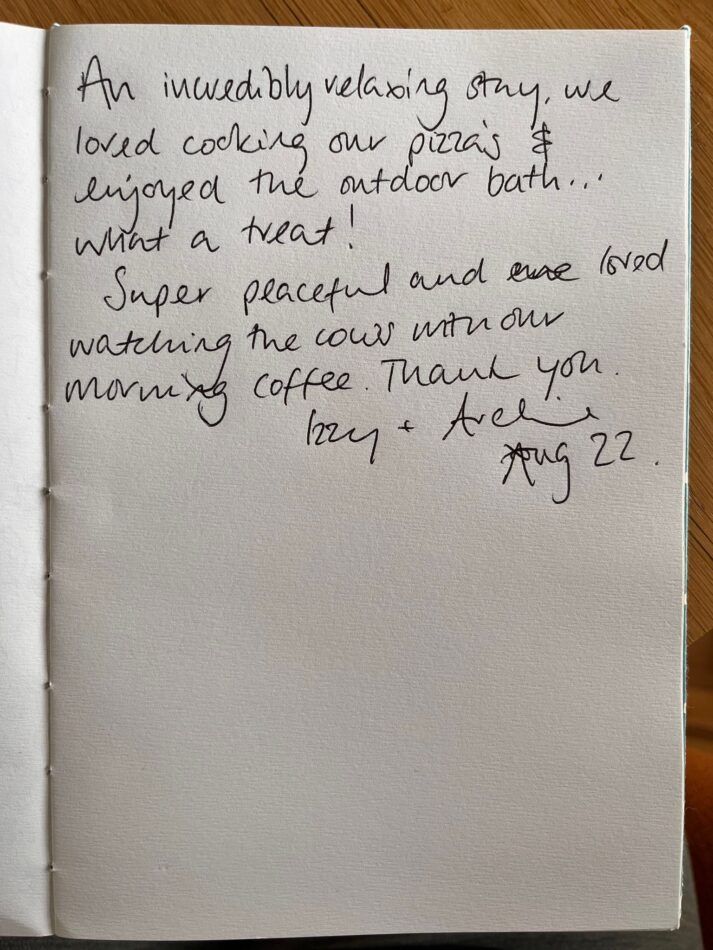 An incredibly relaxing stay, we
loved cooking our pizza's &
enjoyed the outdoor bath...
what a treat!
Super peaceful and loved
watching the cows with our
morning coffee. Thank you.
Izzy + Archie
Aug 22.